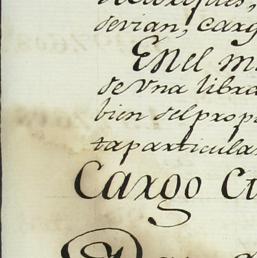 devian, carg
En el m
de vna libra
bien del prop
ta particular
Cargo Cu